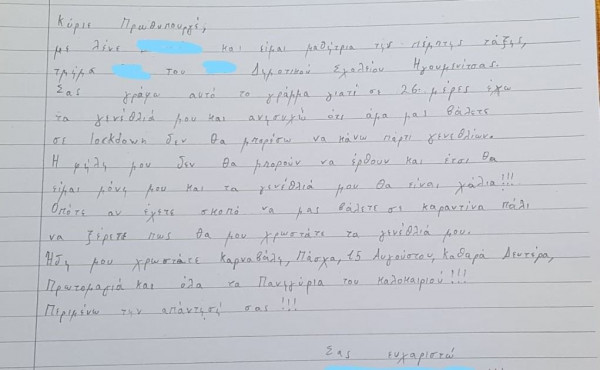 Κύριε Πρωθυπουργέ,
με λένε και είμαι μαθήτρια της πέμπτης τάξης,
τμήμα του Δημοτικού Σχολείου Ηγουμενίτσας.
Σας γράφω αυτό το γράμμα γιατί σε 26 μέρες έχω
τα γενέθλιά μου και ανησυχώ ότι άμα μας βάλετε
σε lockdown δεν θα μπορέσω να κάνω πάρτι γενεθλίων.
Η φίλη μου δεν θα μπορούν να έρθουν και έτσι θα
είμαι μόνη μου και τα γενέθλιά μου θα είναι χάλια!!!
Οπότε αν έχετε σκοπό να μας βάλετε σε καραντίνα πάλι
να ξέρετε πως θα μου χρωστάτε τα γενέθλιά μου.
Ήδη μου χρωστάτε Καρναβάλι, Πάσχα, 15 Αυγούστου, Καθαρά Δευτέρα,
Πρωτομαγιά και όλα τα Πανηγύρια του καλοκαιριού!!!
Περιμένω την απάντησή σας!!!
Σας ευχαριστώ